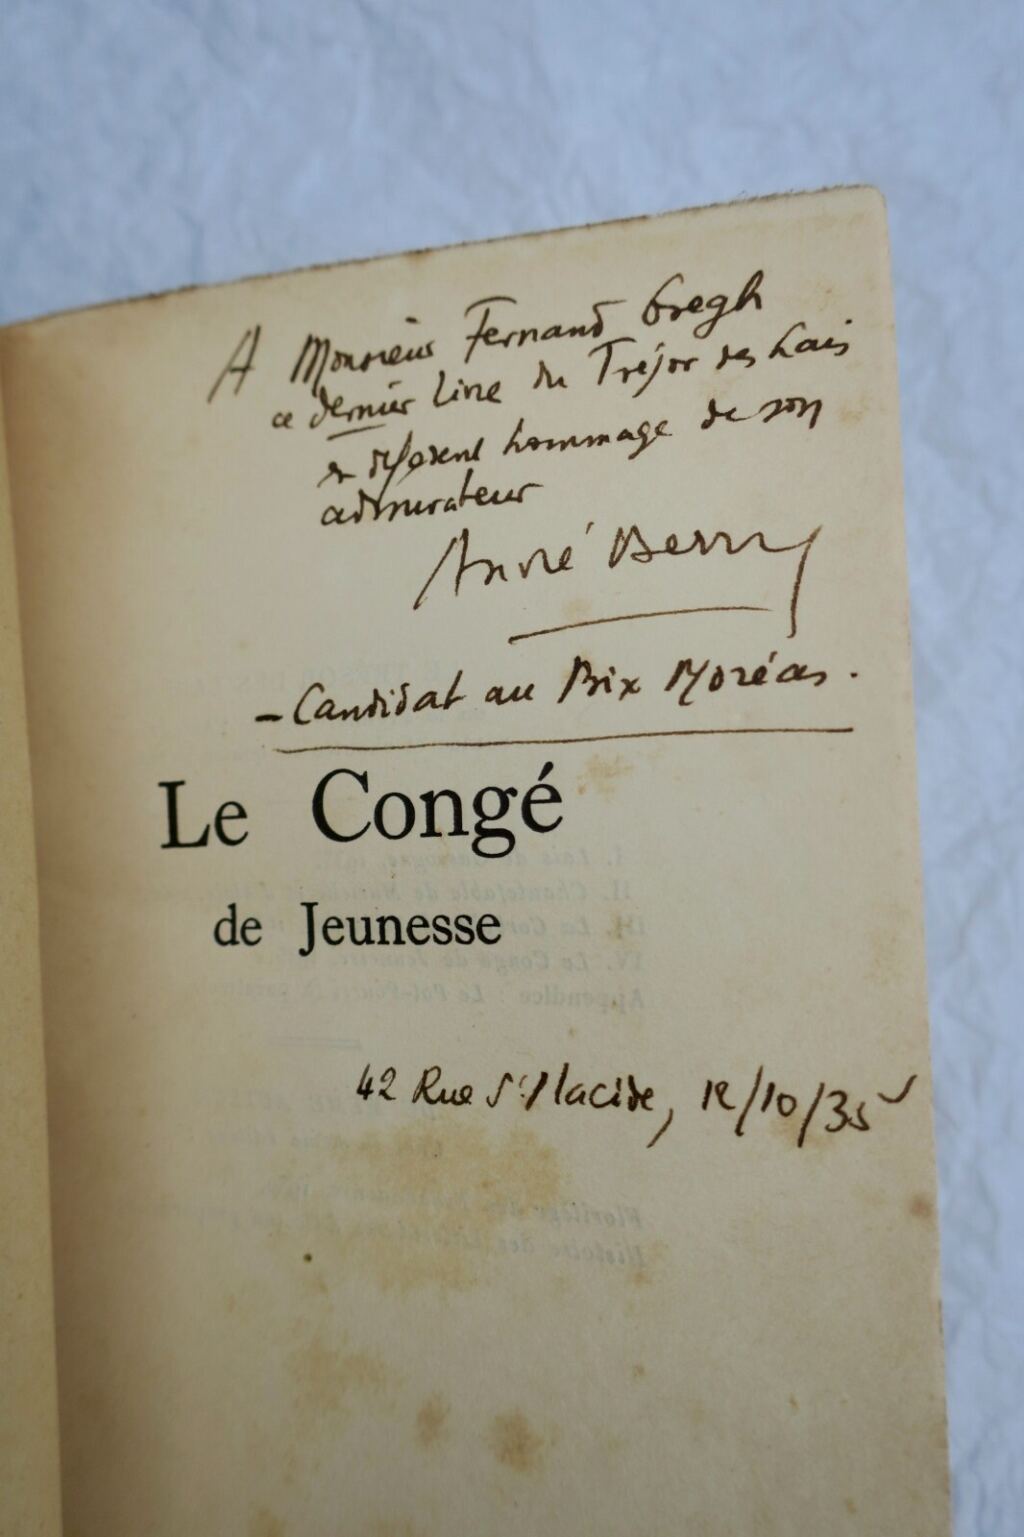 A Monsieur Fernand Gregh
ce dernier livre du Trésor des Lais
en déférent hommage de son
admirateur
André Berry
- Candidat au Prix Moréas.
Le Congé
de Jeunesse
42 Rue St Placide, 12/10/35